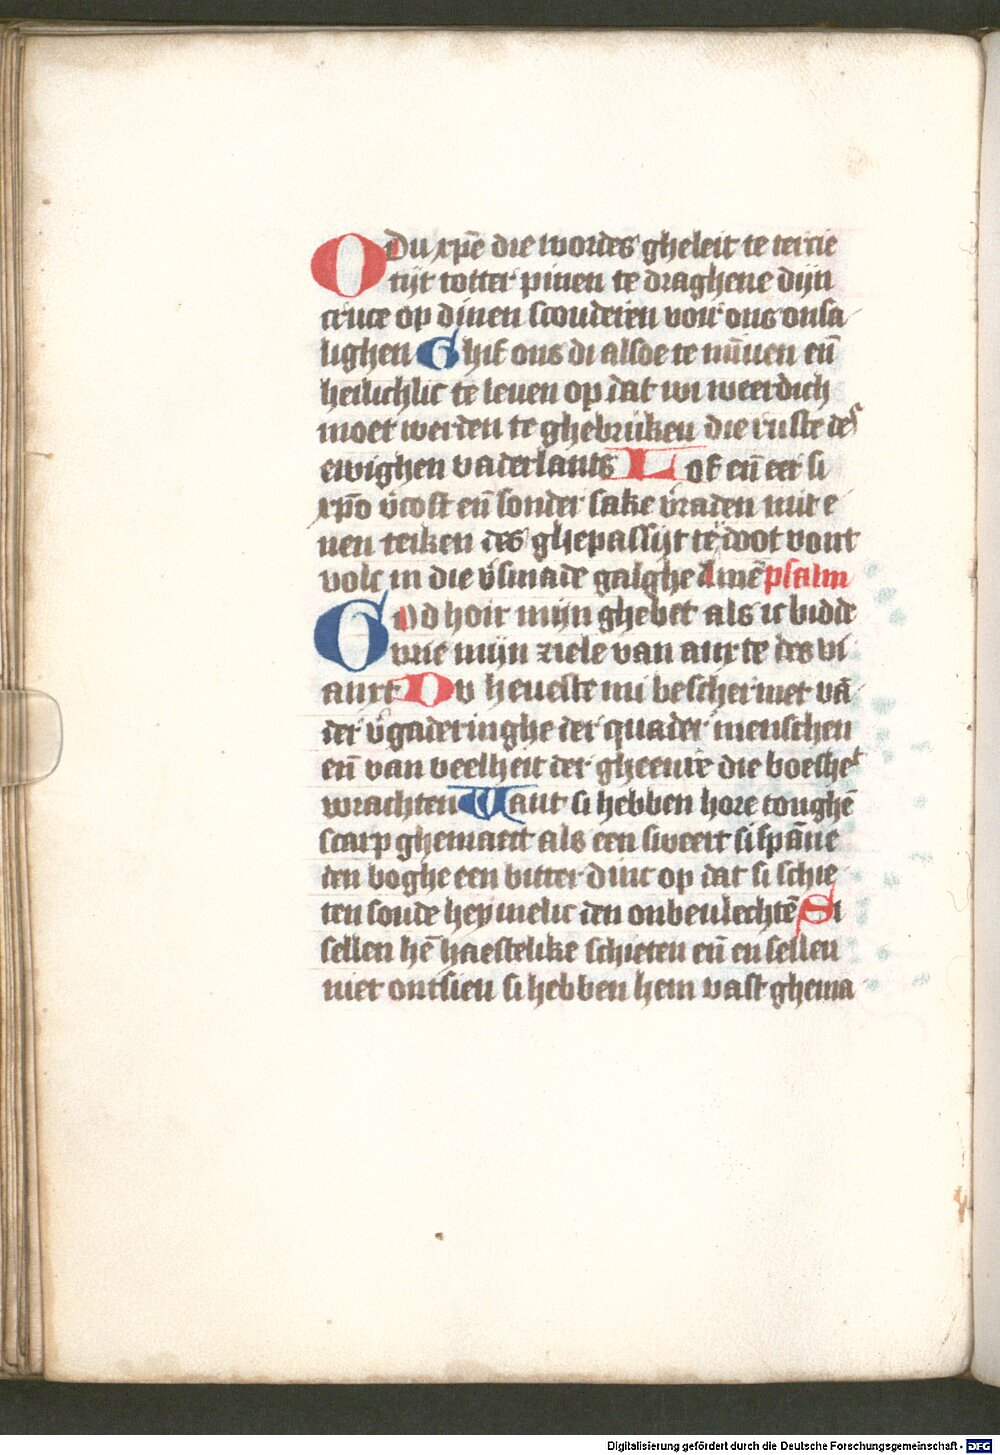 O Du xp̄e die wordes gheleit te tercie
tijt totter pinen te draghene dijn
cruce op dinen scouderen voir ons onsa
lighen Ghif ons di alsoe te mīnen en̄
heilichlic te leuen op dat wi weerdich
moet werden te ghebruken die ruste des
ewighen vaderlants Lof en̄ eer si
xp̄o v̄cost en̄ sonder sake v̄raden mit e
nen teiken des ghepassijt ter doot vont
volc in die v̄smade galghe Amē psalm
God hoir mijn ghebet als ic bidde
vrie mijn ziele van anxte des vi
anxt Du heueste mi beschermet vā
der v̄gaderinghe der quader menschen
en̄ van veelheit der gheenre die boeshet
wrachten Want si hebben hore tonghē
scarp ghemaect als een sweert si spāne
den boghe een bitter dinc op dat si schie
ten soude heymelic den onbeulechtē Si
sellen hē haestelike schieten en̄ en sellen
niet ontsien si hebben hem vast ghema
Digitalisierung gefördert durch die Deutsche Forschungsgemeinschaft - DFG